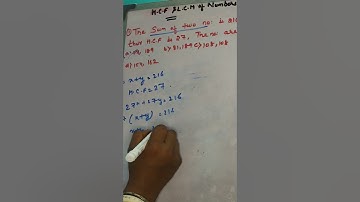 H.C.F & L.C.M of Numbers
The Sum of two no. is 216
their H.C.F is 27, The no. are
189 b) 81, 189 c) 108, 108
x+y = 216
H.C.F = 27
27x + 27y = 216
(x+y) = 216